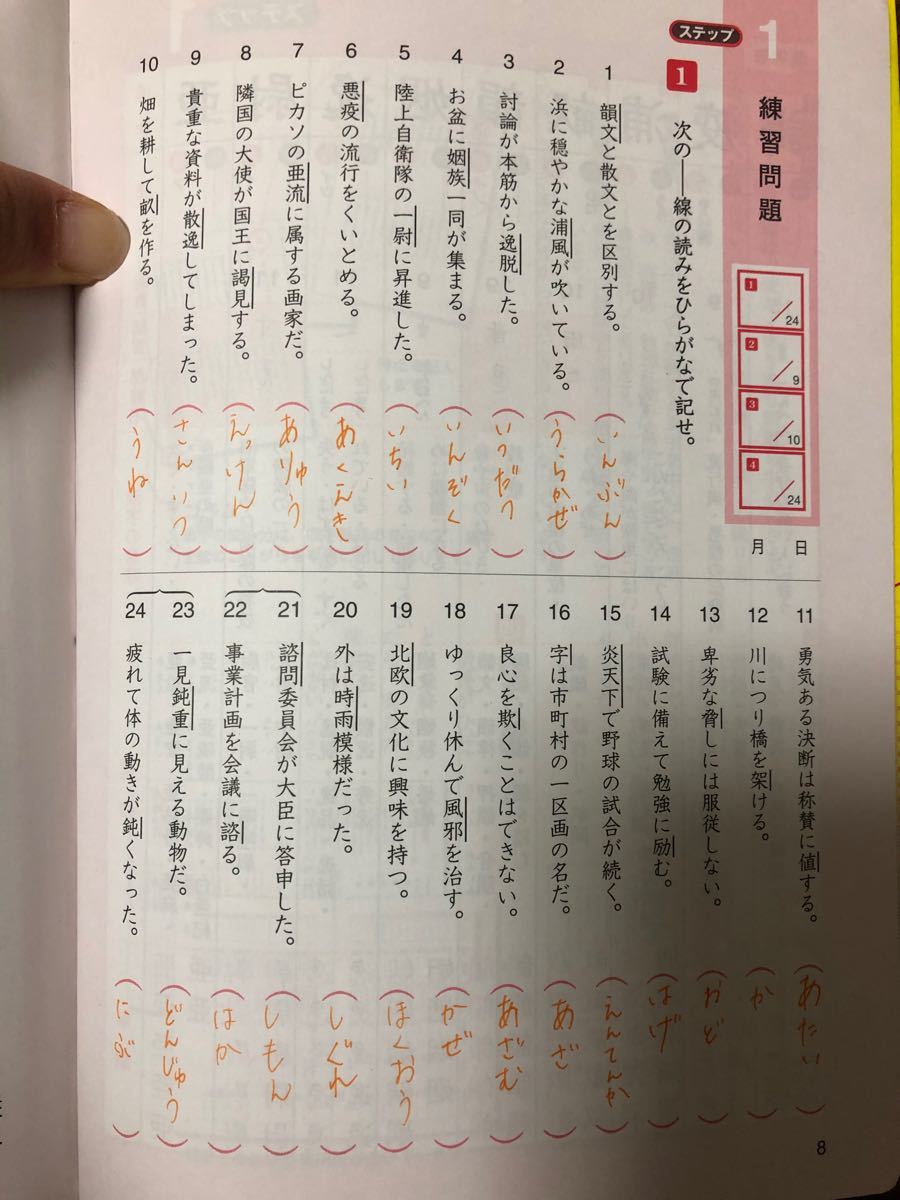 ステップ
1 練習問題
1 /24
2 /9
3 /10
4 /24
月 日
1 次の――線の読みをひらがなで記せ。
1 韻文と散文とを区別する。(いんぶん)
2 浜に穏やかな浦風が吹いている。(うらかぜ)
3 討論が本筋から逸脱した。(いつだつ)
4 お盆に姻族一同が集まる。(いんぞく)
5 陸上自衛隊の一尉に昇進した。(いちい)
6 悪疫の流行をくいとめる。(あくえき)
7 ピカソの亜流に属する画家だ。(ありゅう)
8 隣国の大使が国王に謁見する。(えっけん)
9 貴重な資料が散逸してしまった。(さんいつ)
10 畑を耕して畝を作る。(うね)
11 勇気ある決断は称賛に値する。(あたい)
12 川につり橋を架ける。(か)
13 卑劣な脅しには服従しない。(おど)
14 試験に備えて勉強に励む。(はげ)
15 炎天下で野球の試合が続く。(えんてんか)
16 字は市町村の一区画の名だ。(あざ)
17 良心を欺くことはできない。(あざむ)
18 ゆっくり休んで風邪を治す。(かぜ)
19 北欧の文化に興味を持つ。(ほくおう)
20 外は時雨模様だった。(しぐれ)
21 諮問委員会が大臣に答申した。(しもん)
22 事業計画を会議に諮る。(はか)
23 一見鈍重に見える動物だ。(どんじゅう)
24 疲れて体の動きが鈍くなった。(にぶ)
8